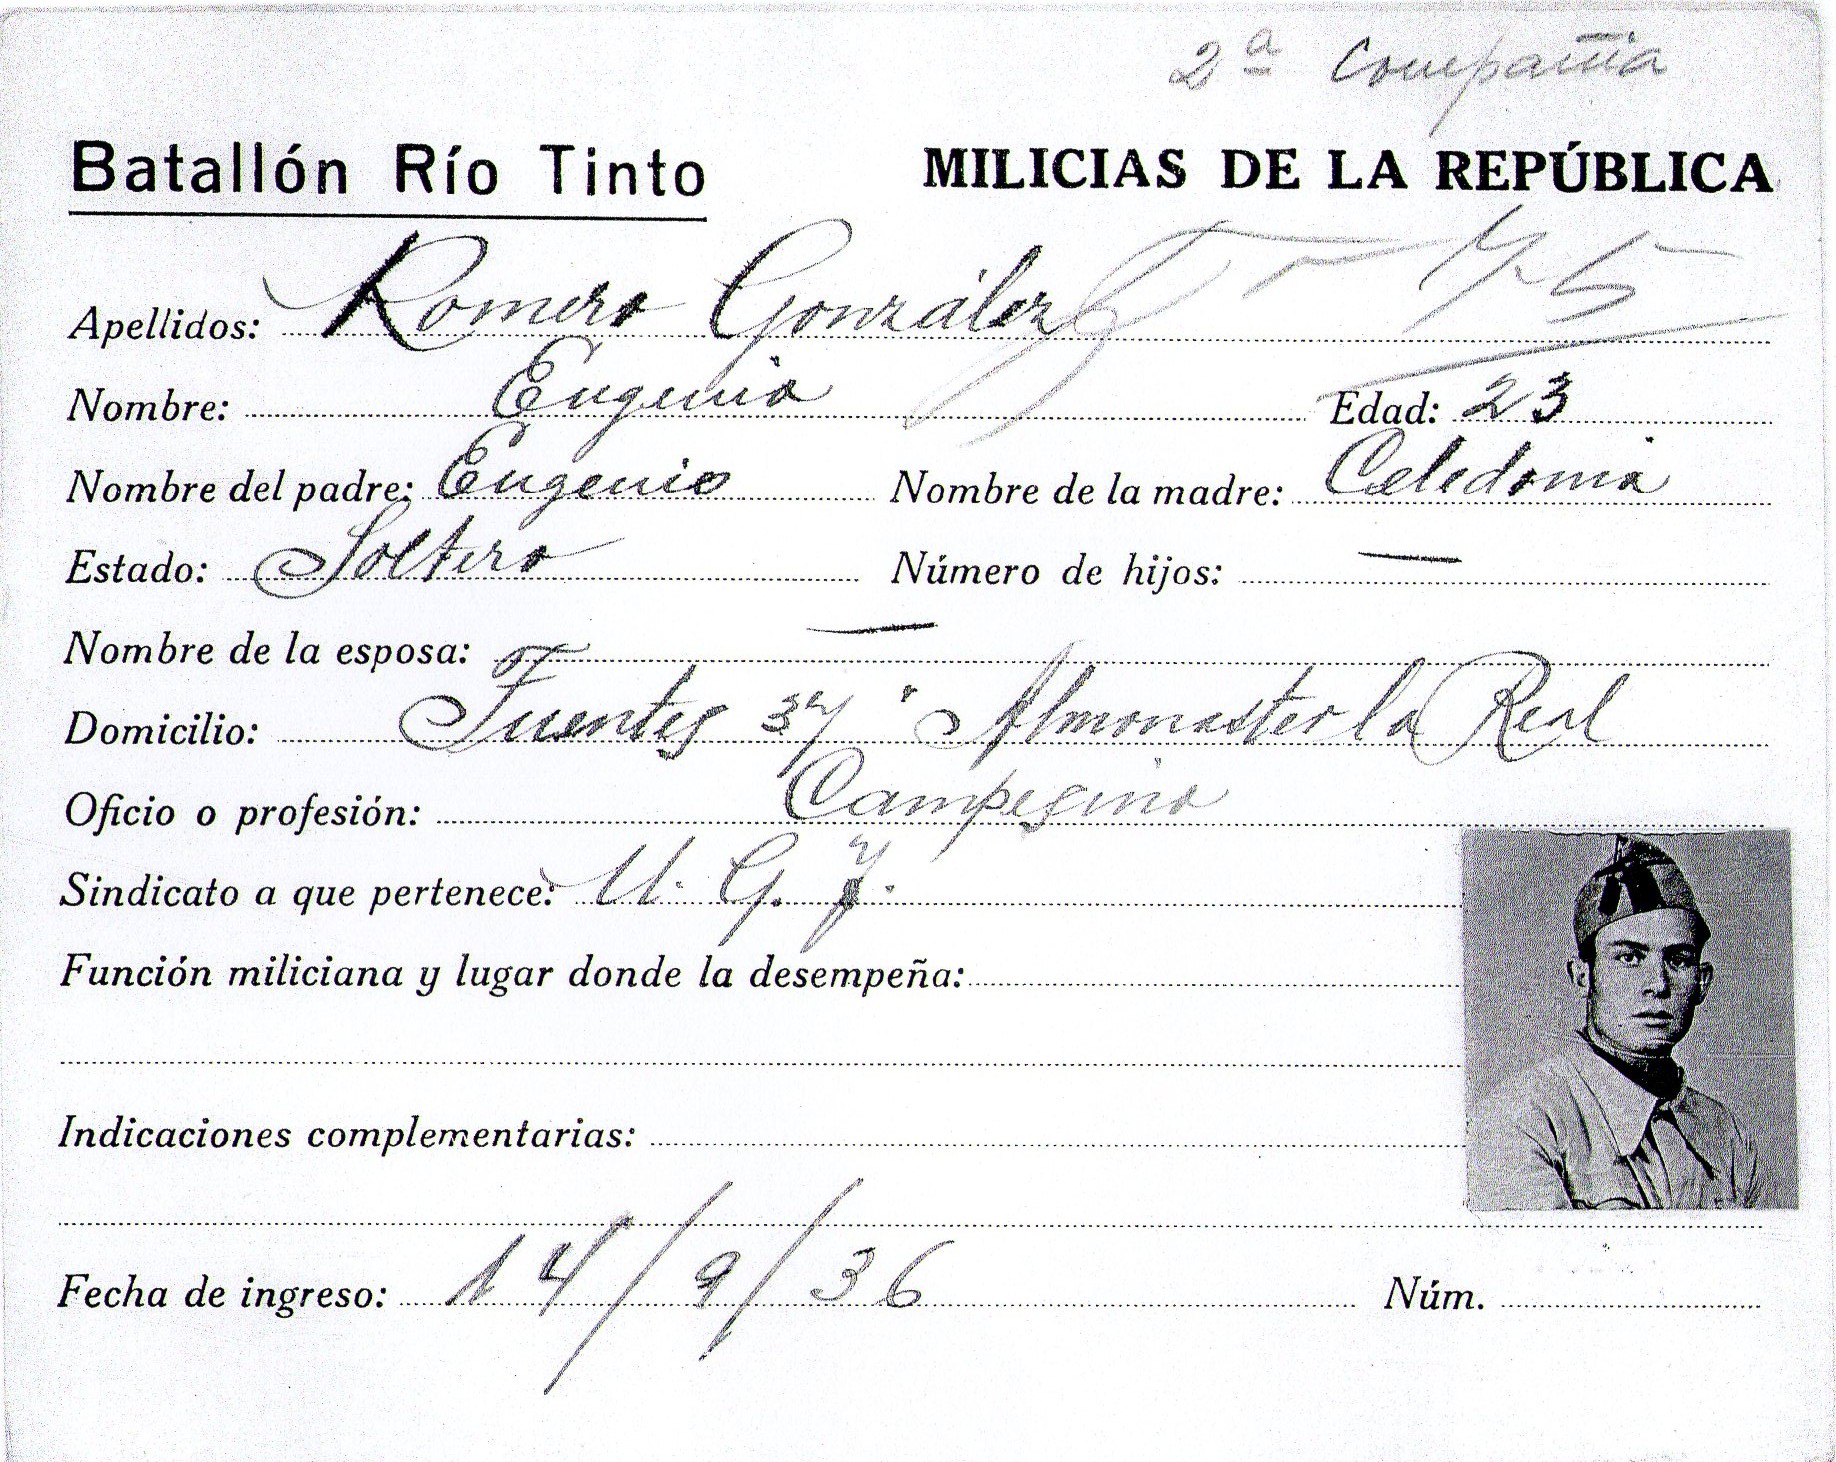 2ª Compañia
Batallón Río Tinto MILICIAS DE LA REPÚBLICA
Apellidos: Romero González
Nombre: Eugenio Edad: 23
Nombre del padre: Eugenio Nombre de la madre: Celedonia
Estado: Soltero Número de hijos: —
Nombre de la esposa: —
Domicilio: Fuentes 37 Almonaster la Real
Oficio o profesión: Campesino
Sindicato a que pertenece: U. G. T.
Función miliciana y lugar donde la desempeña:
Indicaciones complementarias:
Fecha de ingreso: 14/9/36 Núm.